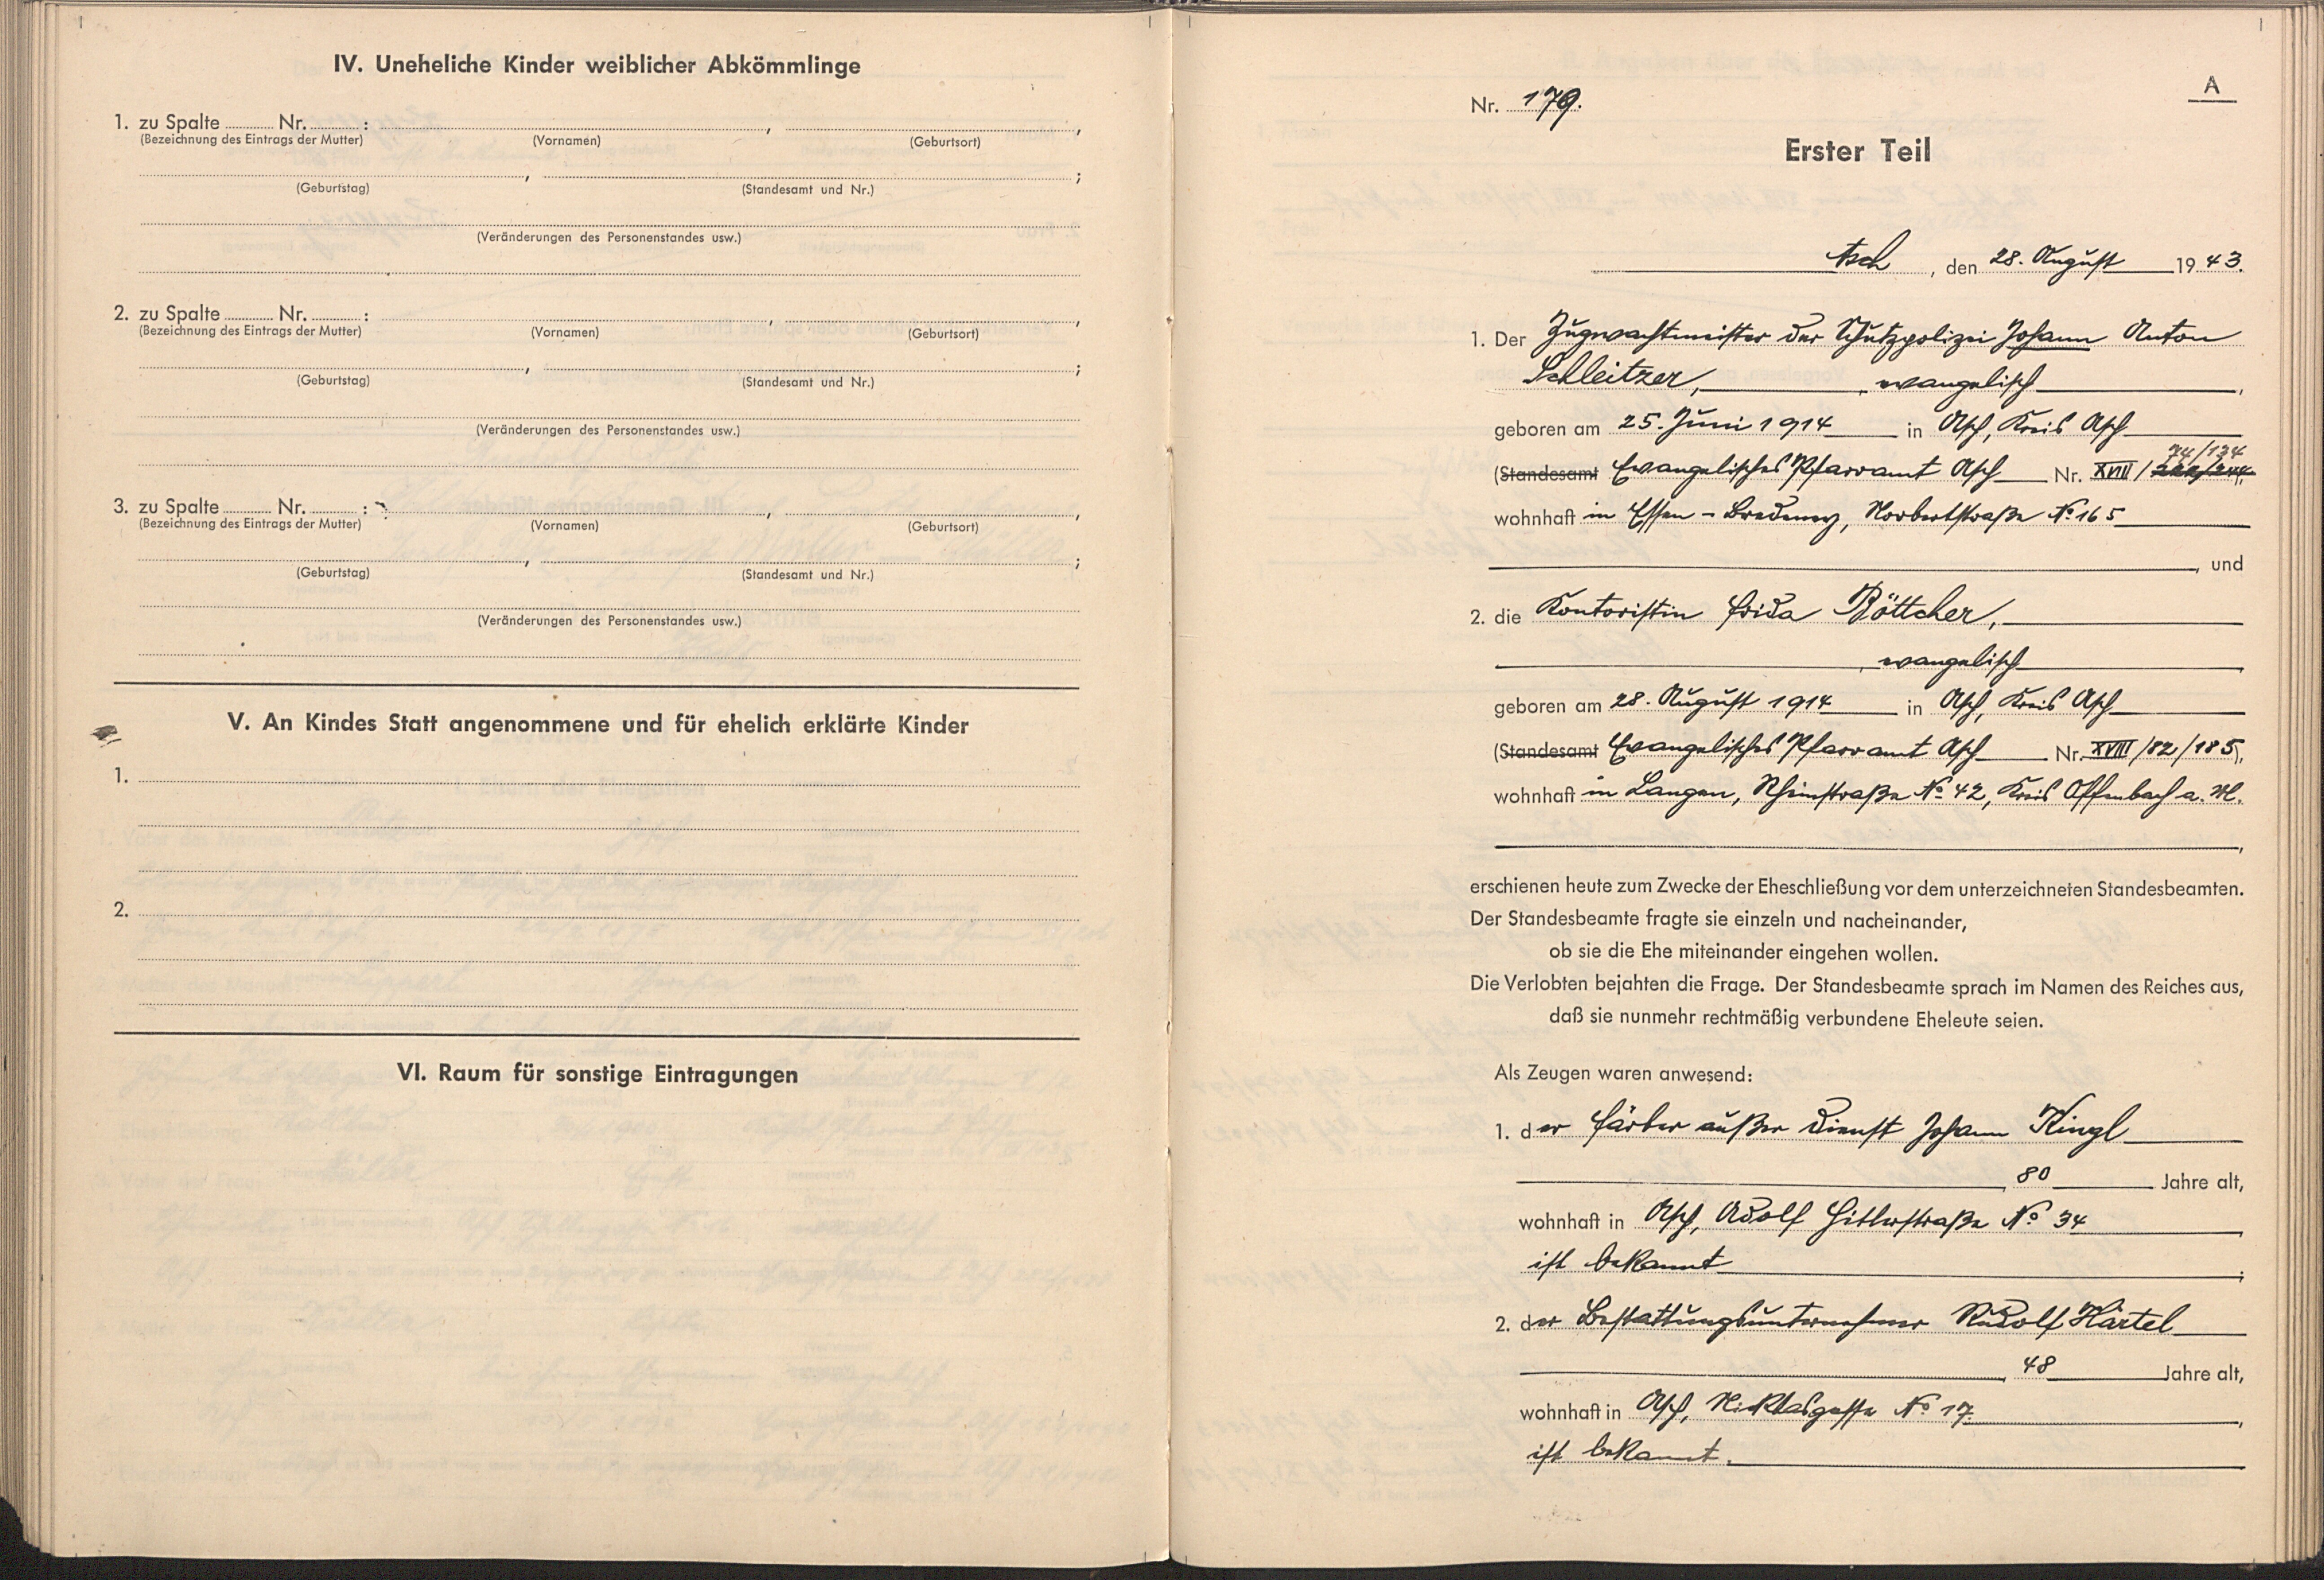 IV. Uneheliche Kinder weiblicher Abkömmlinge
1. zu Spalte Nr. : , ,
(Bezeichnung des Eintrags der Mutter) (Vornamen) (Geburtsort)
, ;
(Geburtstag) (Standesamt und Nr.)
(Veränderungen des Personenstandes usw.)
2. zu Spalte Nr. : , ,
(Bezeichnung des Eintrags der Mutter) (Vornamen) (Geburtsort)
, ;
(Geburtstag) (Standesamt und Nr.)
(Veränderungen des Personenstandes usw.)
3. zu Spalte Nr. : , ,
(Bezeichnung des Eintrags der Mutter) (Vornamen) (Geburtsort)
, ;
(Geburtstag) (Standesamt und Nr.)
(Veränderungen des Personenstandes usw.)
V. An Kindes Statt angenommene und für ehelich erklärte Kinder
1.
2.
VI. Raum für sonstige Eintragungen
A
Nr. 179.
Erster Teil
Asch, den 28. August 1943.
1. Der Zugwachtmeister der Schutzpolizei Johann Anton
Schleitzer, , evangelisch ,
geboren am 25. Juni 1914 in Asch, Kreis Asch
74/134
(Standesamt Evangelisches Pfarramt Asch Nr. XVIII/
wohnhaft in Essen-Bredeney, Norbertstraße No 165
, und
2. die Kontoristin Frida Böttcher,
, evangelisch ,
geboren am 28. August 1914 in Asch, Kreis Asch
(Standesamt Evangelisches Pfarramt Asch Nr. XVIII/82/185),
wohnhaft in Langen, Rheinstraße No 42, Kreis Offenbach a. M.
,
erschienen heute zum Zwecke der Eheschließung vor dem unterzeichneten Standesbeamten.
Der Standesbeamte fragte sie einzeln und nacheinander,
ob sie die Ehe miteinander eingehen wollen.
Die Verlobten bejahten die Frage. Der Standesbeamte sprach im Namen des Reiches aus,
daß sie nunmehr rechtmäßig verbundene Eheleute seien.
Als Zeugen waren anwesend:
1. der Färber außer Dienst Johann Kingl
, 80 Jahre alt,
wohnhaft in Asch, Adolf Hitlerstraße No 34 ,
ist bekannt ;
2. der Bestattungsunternehmer Rudolf Härtel
, 48 Jahre alt,
wohnhaft in Asch, Niklasgasse No 17. ,
ist bekannt.